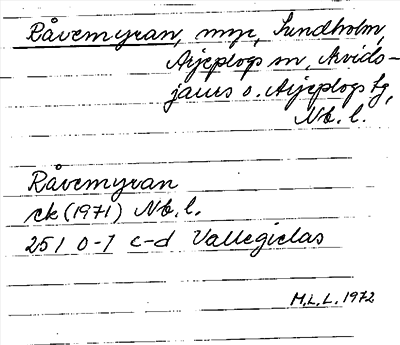 Råvemyran, myr, Sundholm,
Arjeplogs sn, Arvids-
jaurs o. Arjeplogs tg,
Nb. l.
Råvemyran
ek (1971) Nb. l.
25 I 0-1 c-d Vallegielas
M.L.L. 1972